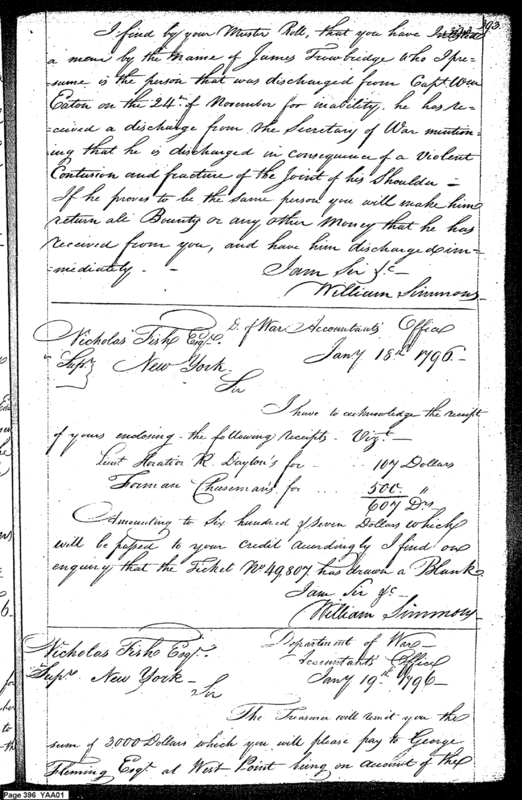 393
I find by your Muster Roll, that you have
a man by the Name of James Trowbridge who I pre=
sume is the person that was discharged from Capt. Wm
Eaton on the 24th of November for inability. he has re=
ceived a discharge from the Secretary of War mention=
ing that he is discharged in consequence of a Violent
Contusion and fracture of the Joint of his Shoulder =
If he proves to be the same person you will make him
return all Bounty or any other Money that he has
received from you, and have him discharged im=
mediately. -
I am Sir &c-
William Simmons
D. of War Accountants Office
Nicholas Fish Esqr.
Jany 18th 1796-
Supr. New York.
Sir
I have to acknowledge the receipt
of yours enclosing the following receipts. Vizt-
Lieut Horatio R. Dayton's for .. 107 Dollars
Forman Cheeseman's for ... 500. "
607 Drs
Amounting to Six hundred & seven Dollars which
will be passed to your credit accordingly I find on
enquiry that the Ticket No 49,807 has drawn a Blank
I am Sir &c-
William Simmons-
Department of War-
Nicholas Fish Esqr.
Accountants Office
Supr. New York-
Jany 19th 1796-
Sir
The Treasurer will remit you the
sum of 3000 Dollars which you will please pay to George
Fleming Esqr. at West Point being on account of the
Page 396 YAA01